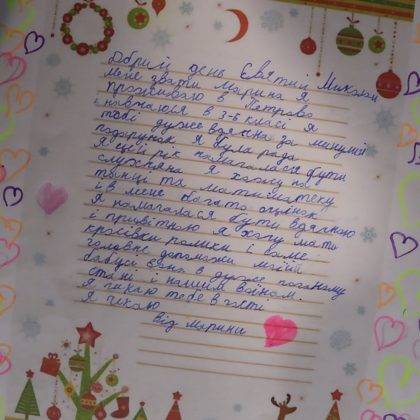 Добрий день Євятий Миколаи
мене звати Марина я
проживаю в Петрово
і навчаюся в 3-Б класі я
тобі дуже вдячна за минулий
подарунок я була рада
я цей рік намагалася бути
слухняна я хожу на
танці та математеку
і в мене багато оцінок
я намагалася бути вдячною
і привітною я хочу мати
кросівки ролики і саме
головне допоможи моїй
бабусі вона в дуже поганому
стані і нашим воїнам.
я чикаю тебе в гості
я чикаю
Від Марини